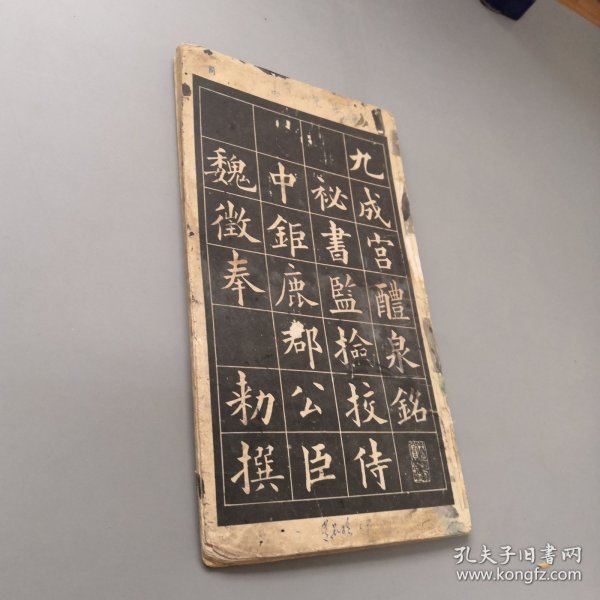 九成宮醴泉銘
祕書監撿挍侍
中鉅鹿郡公臣
魏徵奉
勑撰
孔夫子旧书网
www.kongfz.com